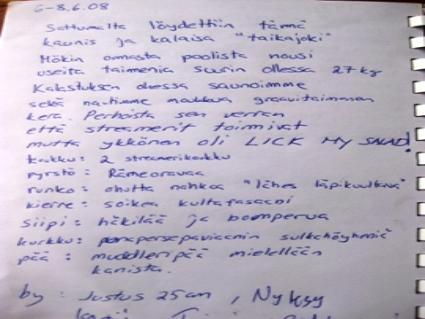 6-8.6.08
Sattumalta löydettiin tämä
kaunis ja kalaisa "taikajoki"
Mökin omasta poolista nousi
useita taimenia suurin ollessa 2,7 kg
Kalastuksen ohessa saunoimme
sekä nautimme maukkaa graavitaimenen
kera. Perhoista sen verran
että streamerit toimivat
mutta ykkönen oli LICK MY SALAD!
koukku: 2 streamerikoukku
pyrstö: Rämeoravaa
runko: ohutta nahkaa "lähes läpikuultava"
kierre: soikea kultafasaani
siipi: häkilää ja bomperua
kurkku: paviaanin sulkahöyheniä
pää: muddleripää mielellään
kanista.
by: Justus 25cm, Nyksy